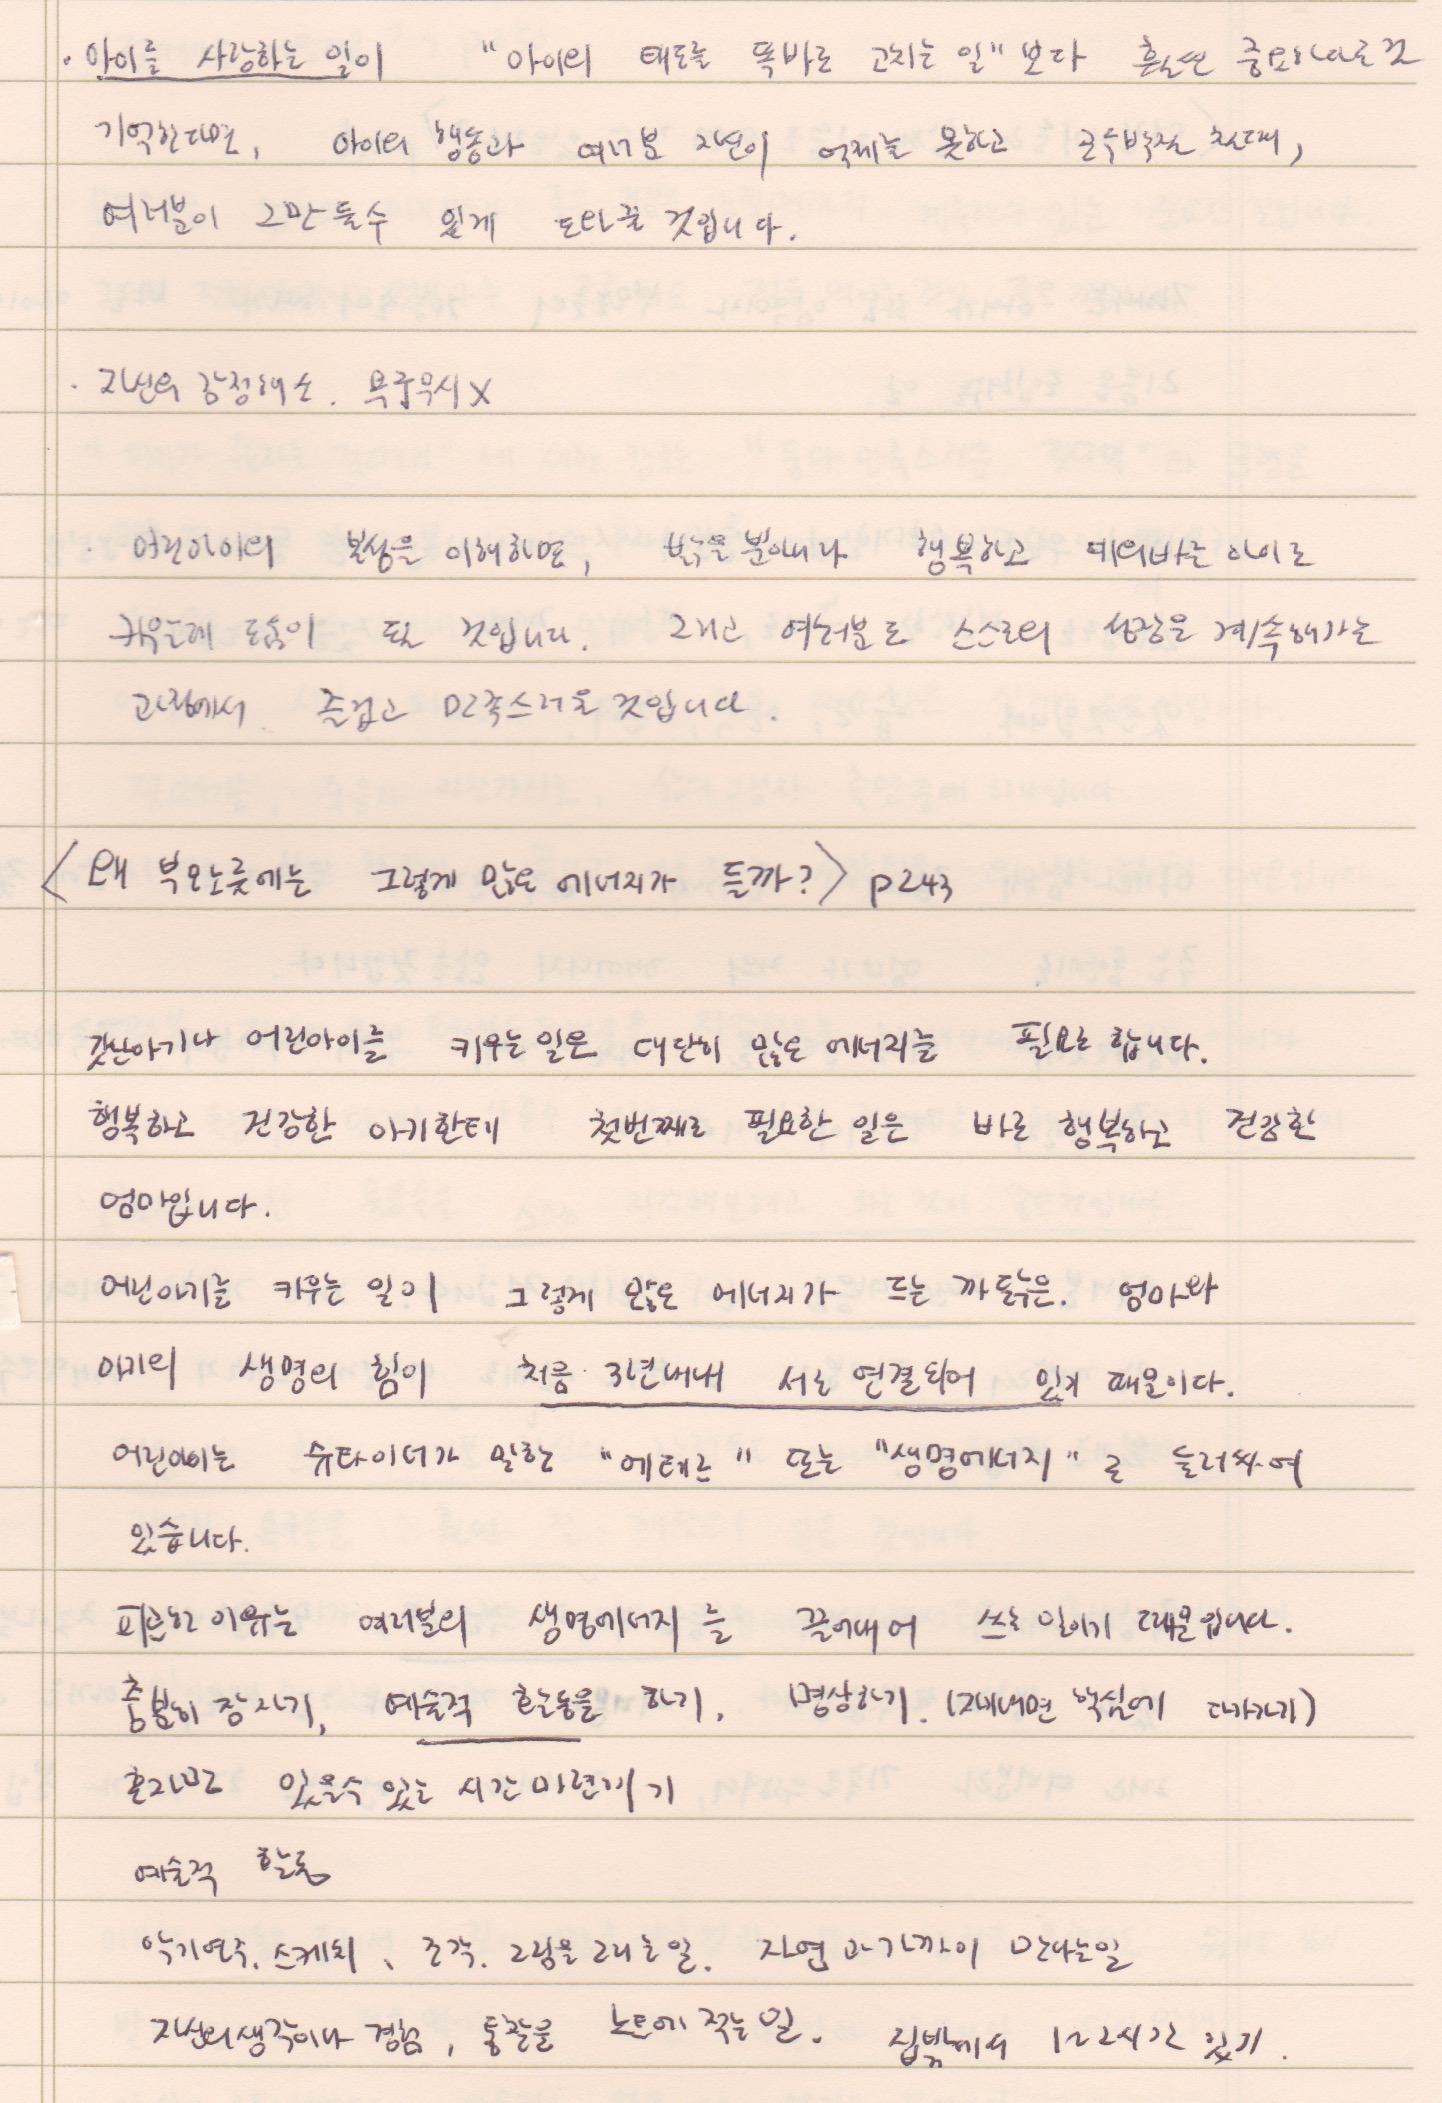 · 아이를 사랑하는 일이 "아이의 태도를 똑바로 고치는 일" 보다 훨씬 중요하다는것
기억한다면, 아이의 행동과 여러분 자신이 억제를 못하고 할때,
여러분이 그만둘수 있게 도와줄 것입니다.
· 자신의 감정해소. 욕구무시X
· 어린아이의 본성을 이해하면, 밝을뿐아니라 행복하고 예의바른 아이로
키우는데 도움이 될 것입니다. 그리고 여러분도 스스로의 성장을 계속해가는
과정에서 즐겁고 만족스러울것입니다.
〈왜 부모노릇에는 그렇게 많은 에너지가 들까?〉 p243
갓난아기나 어린아이를 키우는일은 대단히 많은 에너지를 필요로 합니다.
행복하고 건강한 아기한테 첫번째로 필요한 일은 바로 행복하고 건강한
엄마입니다.
어린아기를 키우는 일이 그렇게 많은 에너지가 드는 까닭은. 엄마와
아기의 생명의 힘이 처음 3년내내 서로 연결되어 있기 때문이다.
어린아이는 슈타이너가 말한 "에테르" 또는 "생명에너지"로 둘러싸여
있습니다.
피곤한 이유는 여러분의 생명에너지를 끌어내어 쓰는 일이기 때문입니다.
충분히 잠자기, 예술적 활동을 하기, 명상하기. (자기내면 핵심에 다가가기)
혼자만 있을수있는 시간마련하기
예술적 활동
악기연주, 스케치, 조각, 그림을 그리는일. 자연과 가까이 만나는일
자신의생각이나 경험, 통찰을 노트에 적는 일. 집밖에서 1~2시간 있기.